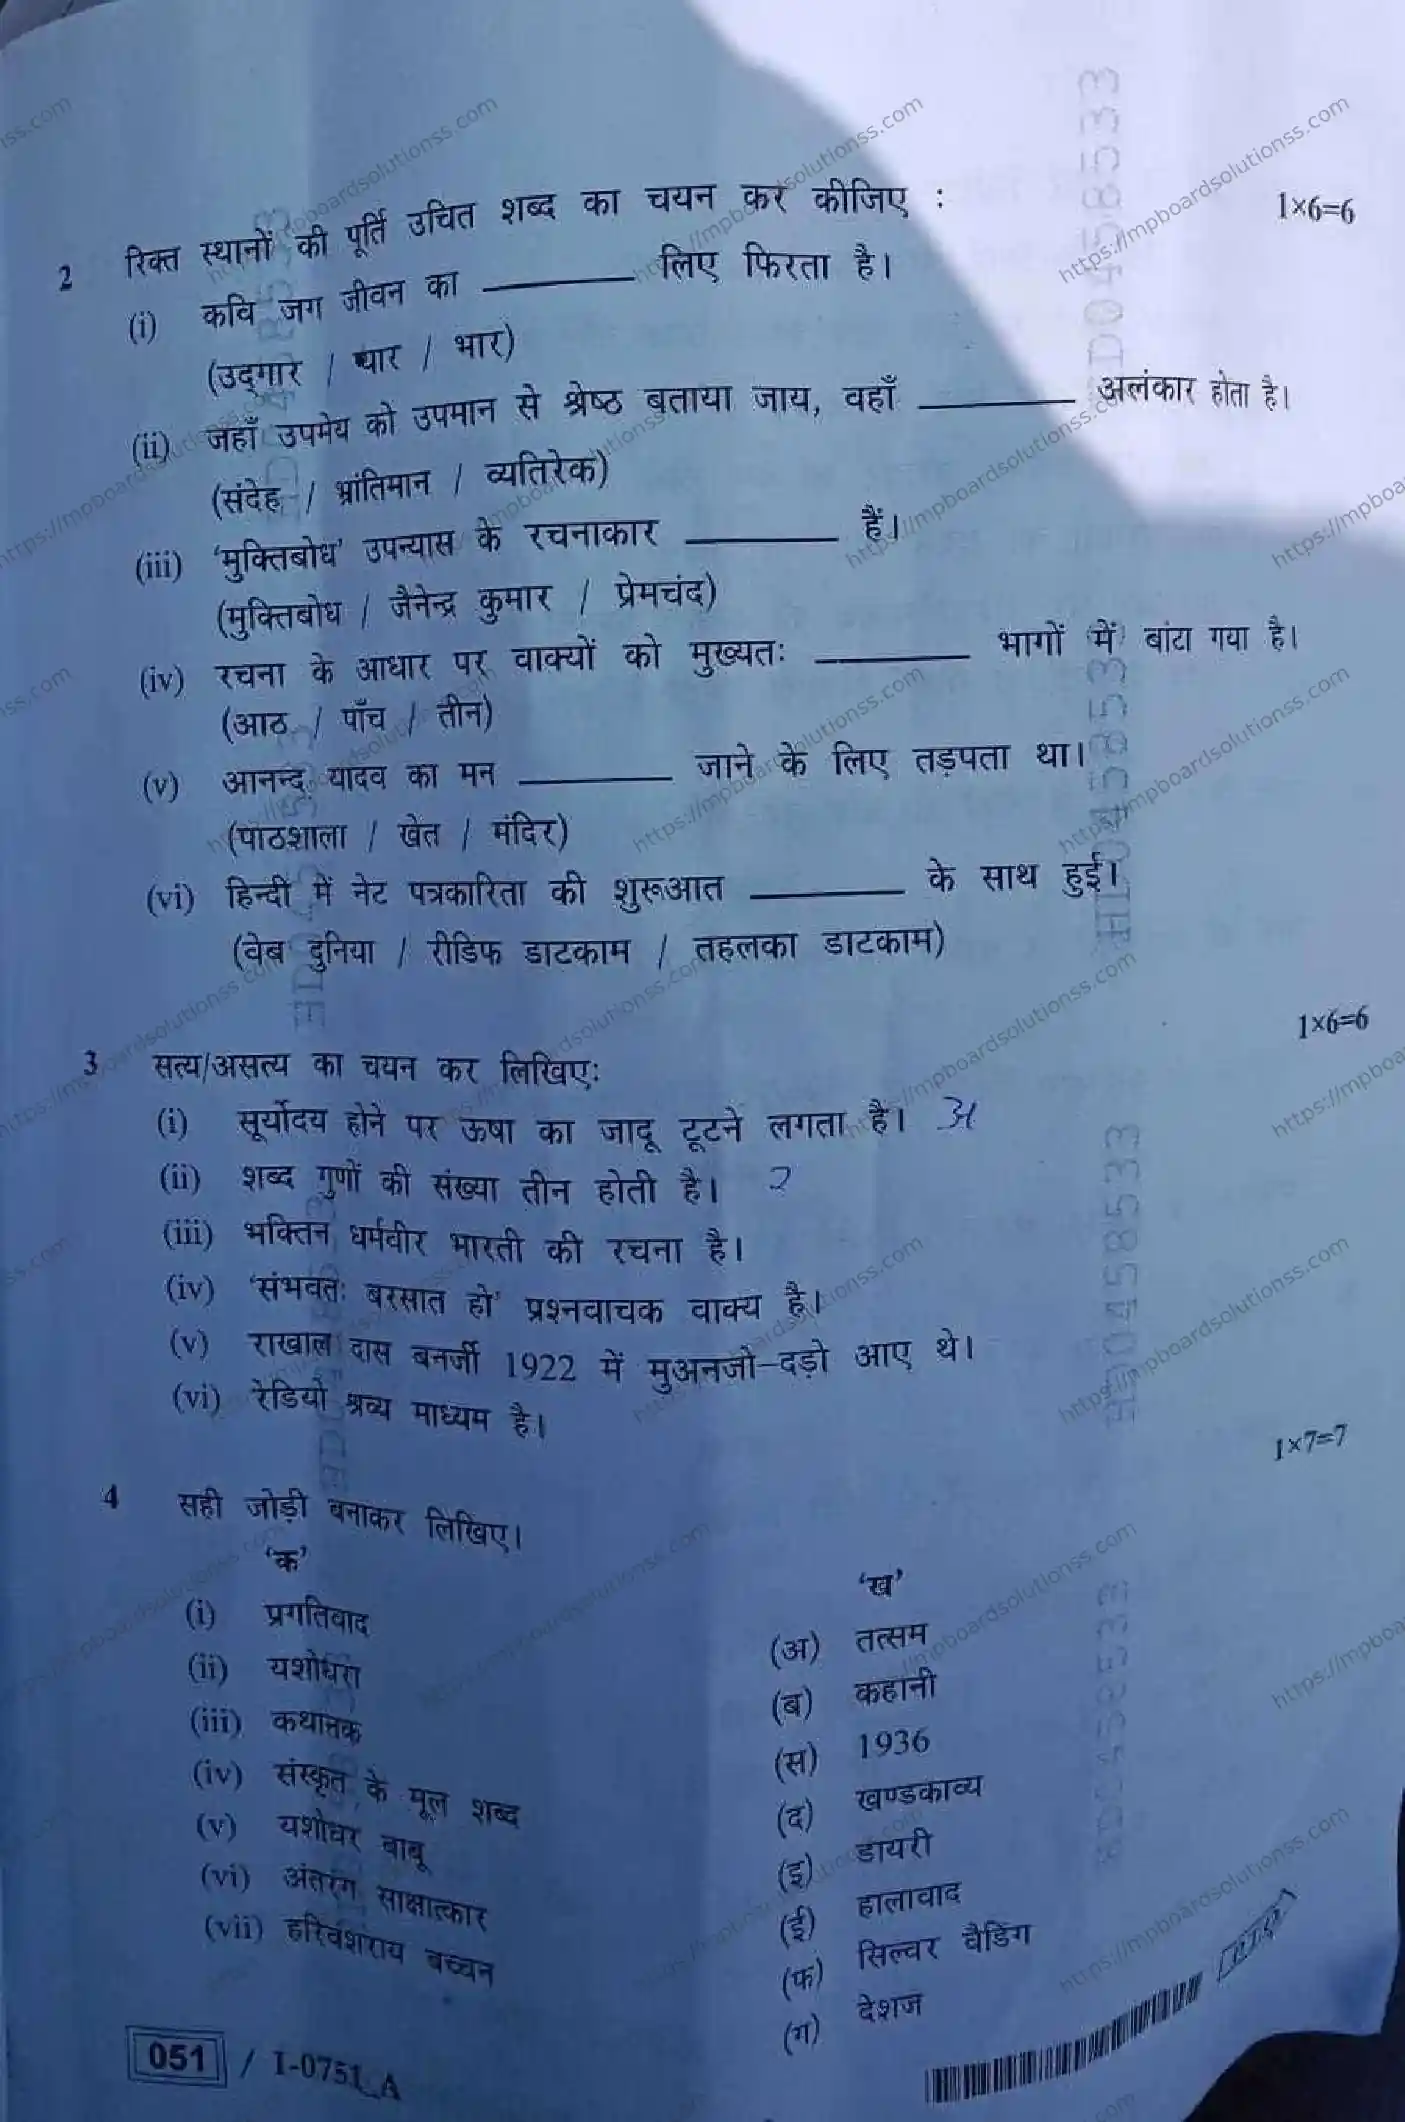 2 रिक्त स्थानों की पूर्ति उचित शब्द का चयन कर कीजिए : 1×6=6
(i) कवि जग जीवन का ________ लिए फिरता है।
(उद्गार / प्यार / भार)
(ii) जहाँ उपमेय को उपमान से श्रेष्ठ बताया जाय, वहाँ ________ अलंकार होता है।
(संदेह / भ्रांतिमान / व्यतिरेक)
(iii) 'मुक्तिबोध' उपन्यास के रचनाकार ________ हैं।
(मुक्तिबोध / जैनेन्द्र कुमार / प्रेमचंद)
(iv) रचना के आधार पर वाक्यों को मुख्यतः ________ भागों में बांटा गया है।
(आठ / पाँच / तीन)
(v) आनन्द यादव का मन ________ जाने के लिए तड़पता था।
(पाठशाला / खेत / मंदिर)
(vi) हिन्दी में नेट पत्रकारिता की शुरूआत ________ के साथ हुई।
(वेब दुनिया / रीडिफ डाटकाम / तहलका डाटकाम)
3 सत्य/असत्य का चयन कर लिखिए: 1×6=6
(i) सूर्योदय होने पर ऊषा का जादू टूटने लगता है। अ
(ii) शब्द गुणों की संख्या तीन होती है।
(iii) भक्तिन धर्मवीर भारती की रचना है।
(iv) 'संभवतः बरसात हो' प्रश्नवाचक वाक्य है।
(v) राखाल दास बनर्जी 1922 में मुअनजो-दड़ो आए थे।
(vi) रेडियो श्रव्य माध्यम है।
4 सही जोड़ी बनाकर लिखिए। 1×7=7
'क' 'ख'
(i) प्रगतिवाद (अ) तत्सम
(ii) यशोधरा (ब) कहानी
(iii) कथानक (स) 1936
(iv) संस्कृत के मूल शब्द (द) खण्डकाव्य
(v) यशोधर बाबू (इ) डायरी
(vi) अंतरंग साक्षात्कार (ई) हालावाद
(vii) हरिवंशराय बच्चन (फ) सिल्वर वैडिंग
(ग) देशज
051 / I-0751_A
https://mpboardsolutionss.com